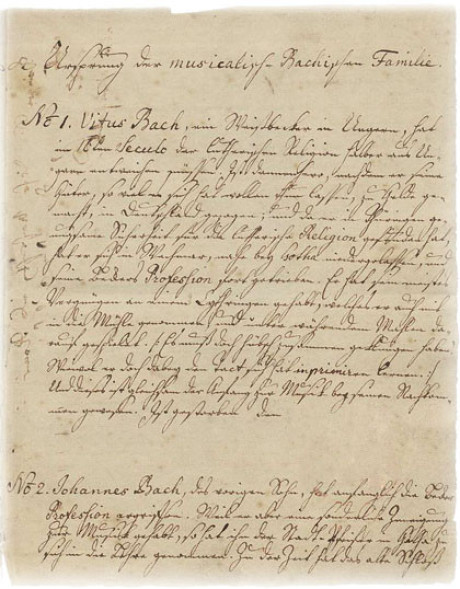 Ursprung der musicalisch-Bachischen Familie.
No 1. Vitus Bach, ein Weissbecker in Ungern, hat
im 16ten Seculo der lutherischen Religion halber aus Un-
garn entweichen müssen. Ist dannenhero, nachdem er seine
Güter, so viel es sich hat wollen thun lassen, zu Gelde ge-
macht, in Deutschland gezogen; und da er in Thüringen ge-
nugsame Sicherheit für die lutherische Religion gefunden hat,
hat er sich in Wechmar, nahe bey Gotha niedergelassen, und
seine Beckers Profession fortgetrieben. Er hat sein meistes
Vergnügen an einem Cythringen gehabt, welches er auch mit
in die Mühle genommen, und unter währendem Mahlen da-
rauf gespielet. (Es muß doch hübsch zusammen geklungen haben!
Wiewol er doch dabey den Tact sich hat imprimiren lernen.)
Und dieses ist gleichsam der Anfang zur Musik bey seinen Nachkom-
men gewesen. Ist gestorben den
No 2. Johannes Bach, des vorigen Sohn, hat anfänglich die Becker
Profession ergriffen. Weil er aber eine sonderliche Zuneigung
zur Musik gehabt, so hat ihn der Stadt-Pfeiffer in Gotha zu
sich in die Lehre genommen. Zu der Zeit hat das alte Schloß